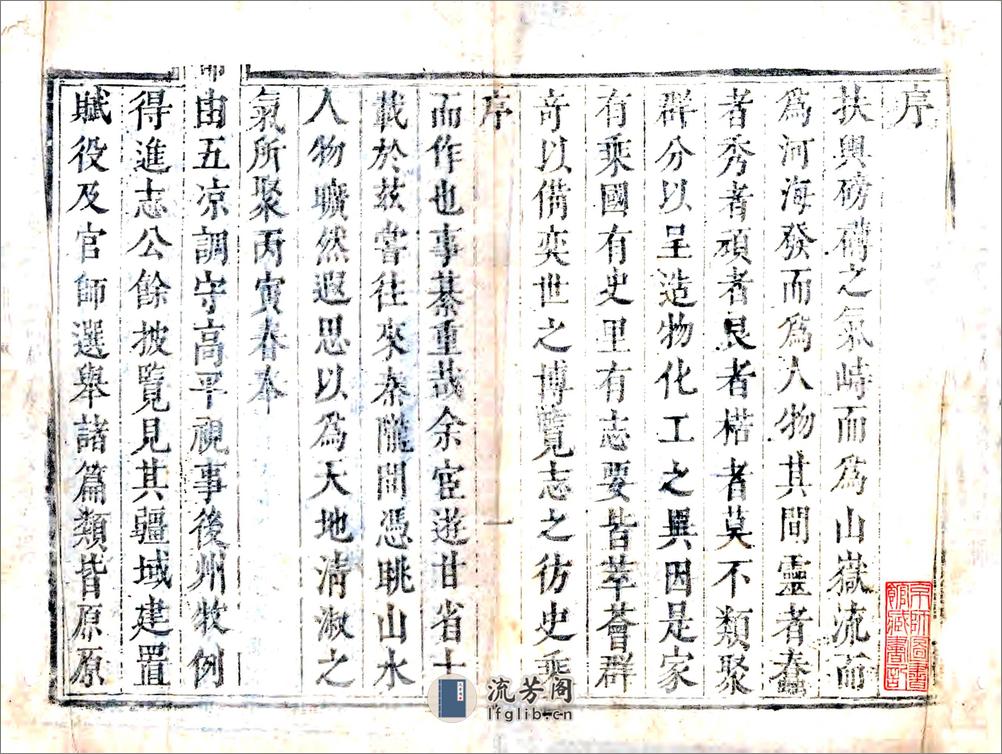 序
扶輿磅礴之氣峙而爲山嶽流而
爲河海發而爲人物其間靈者蠢
者秀者頑者艮者楛者莫不類聚
群分以呈造物化工之異因是家
有乘國有史里有志要皆萃薈群
奇以備奕世之博覽志之彷史乘
序
一
而作也事綦重哉余宦遊甘省十
載於茲嘗往來秦隴間憑眺山水
人物曠然遐思以爲天地淸淑之
氣所聚丙寅春本
由五凉調守高平視事後州牧例
得進志公餘披覽見其疆域建置
賦役及官師選舉諸篇類皆原原
京師圖書
館藏書印
流芳阁
lfglib.cn